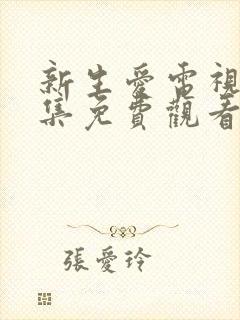 新生愛電視
集免費觀看
張愛玲